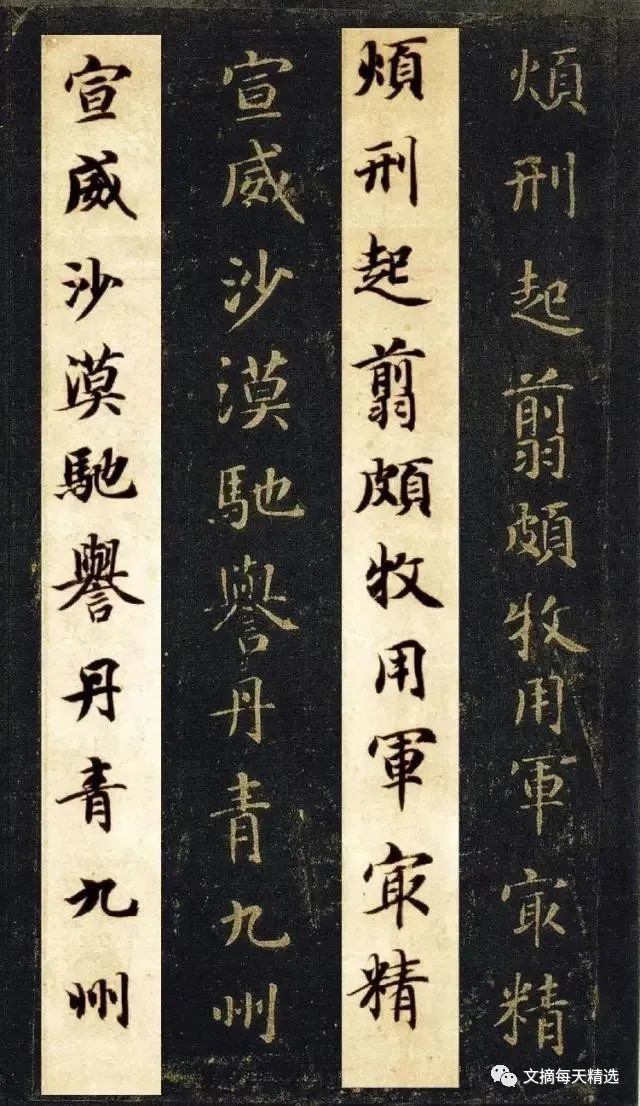 煩刑起翦頗牧用軍㝡精
煩刑起翦頗牧用軍㝡精
宣威沙漠馳譽丹青九州
宣威沙漠馳譽丹青九州
文摘每天精选